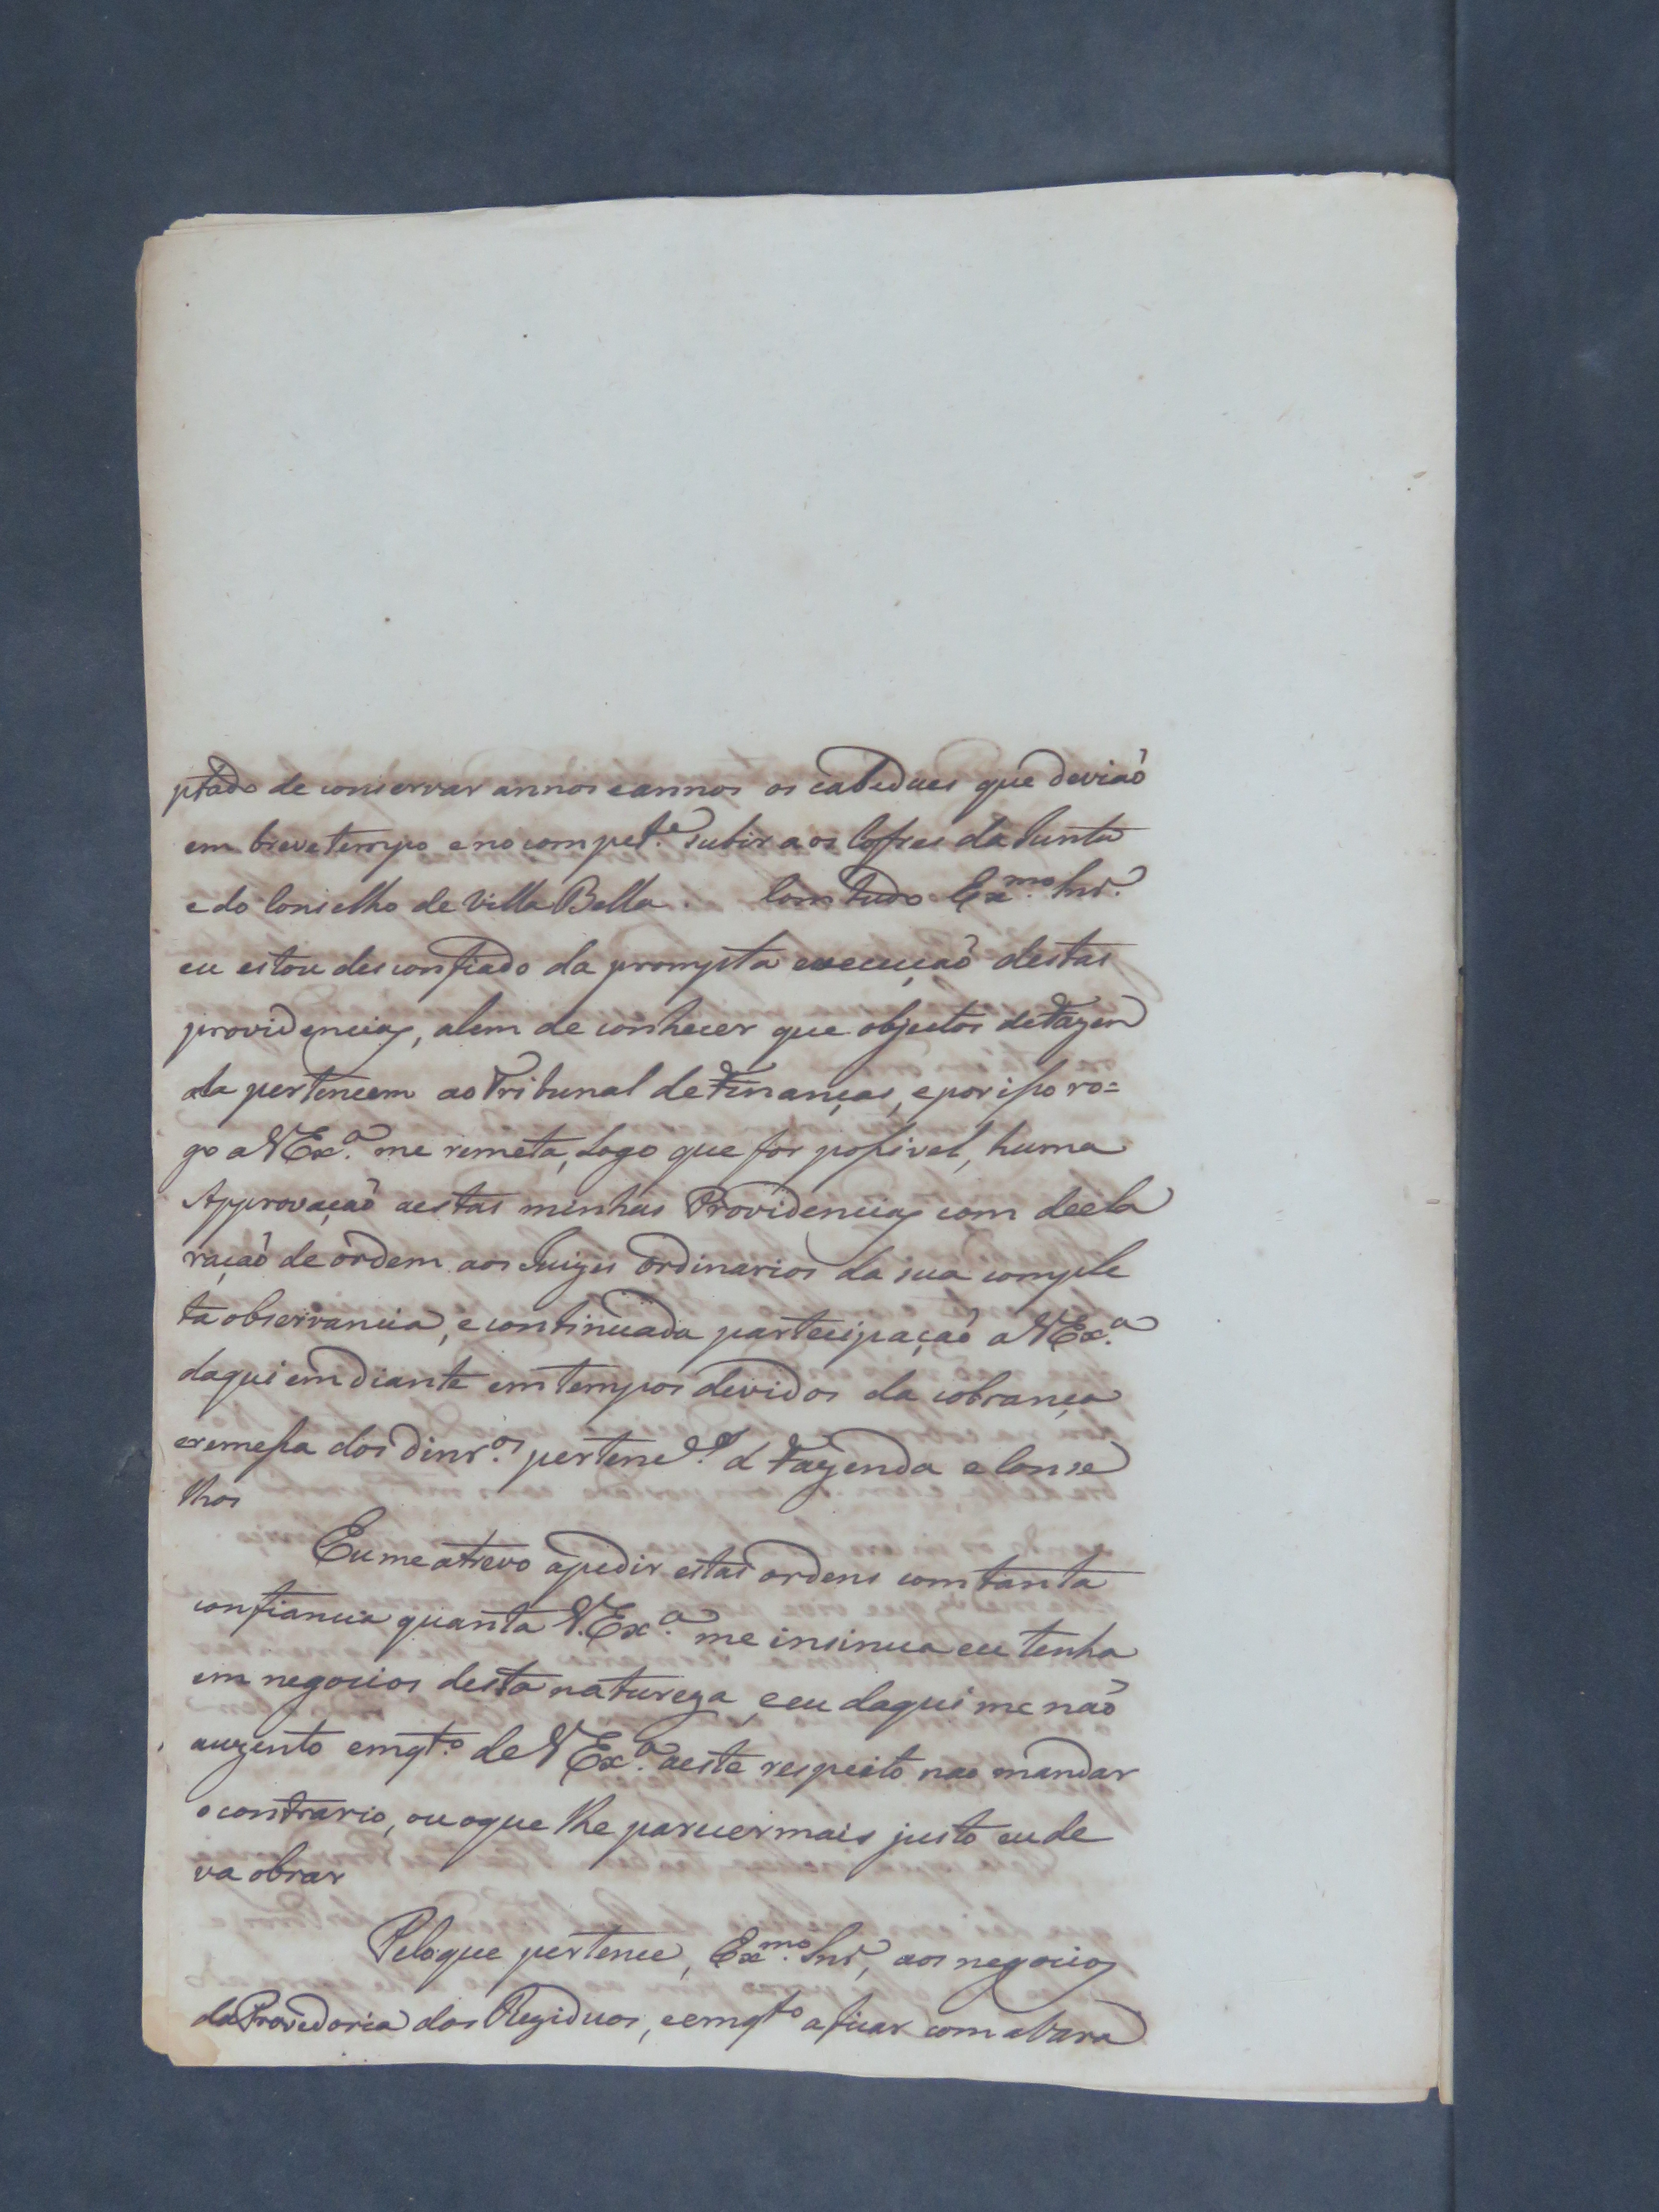 ptado de conservar annos eannos os cabedaes que deviaõ
em breve tempo enocompet.e subir aos Cofres da Junta
edo Conselho de Villa Bella. Com tudo Ex.mo Snr.
eu estou desconfiado da prompta execuçaõ destas
providencias, alem de conhecer que objectos defazen
da pertencem ao Tribunal de Finanças, epor isso ro=
go aVEx.a me remeta, logo que for possivel, huma
Approvaçaõ aestas minhas Providencias com decla
raçaõ de ordem aos Juizes Ordinarios da sua comple
ta observancia, e continuada partecipaçaõ aVEx.a
daqui emdiante em tempos devidos da cobrança
eremessa dos dinr.os pertenc.es á Fazenda e Conse
lhos
Eu me atrevo apedir estas ordens com tanta
confiancia quanta V.Ex.a me insinua eu tenha
em negocios desta natureza, e eu daqui me naõ
auzento emqt.o de VEx.a aeste respeito nao mandar
o contrario, ou oque lhe parecer mais justo eu de
va obrar
Peloque pertence, Ex.mo Snr, aos negocios
da Provedoria dos Reziduos, e emqto a ficar com a Vara